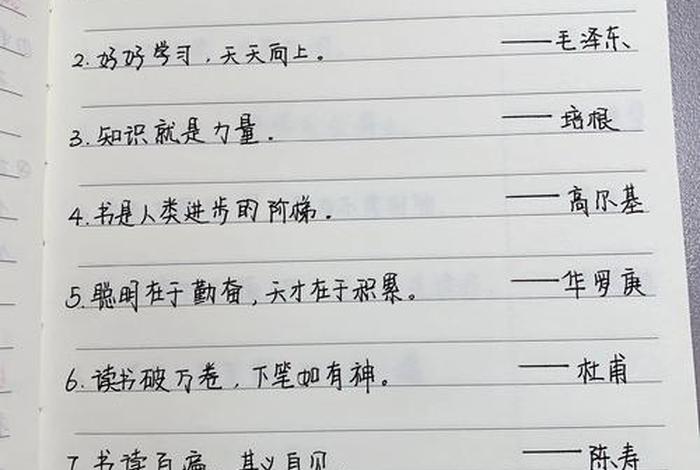 2. 好好学习，天天向上。 ——毛泽东、
3. 知识就是力量. ——培根
4. 书是人类进步的阶梯. ——高尔基
5. 聪明在于勤奋，天才在于积累。 ——华罗庚
6. 读书破万卷，下笔如有神。 ——杜甫
7. 书读百遍，其义自见 ——陈寿